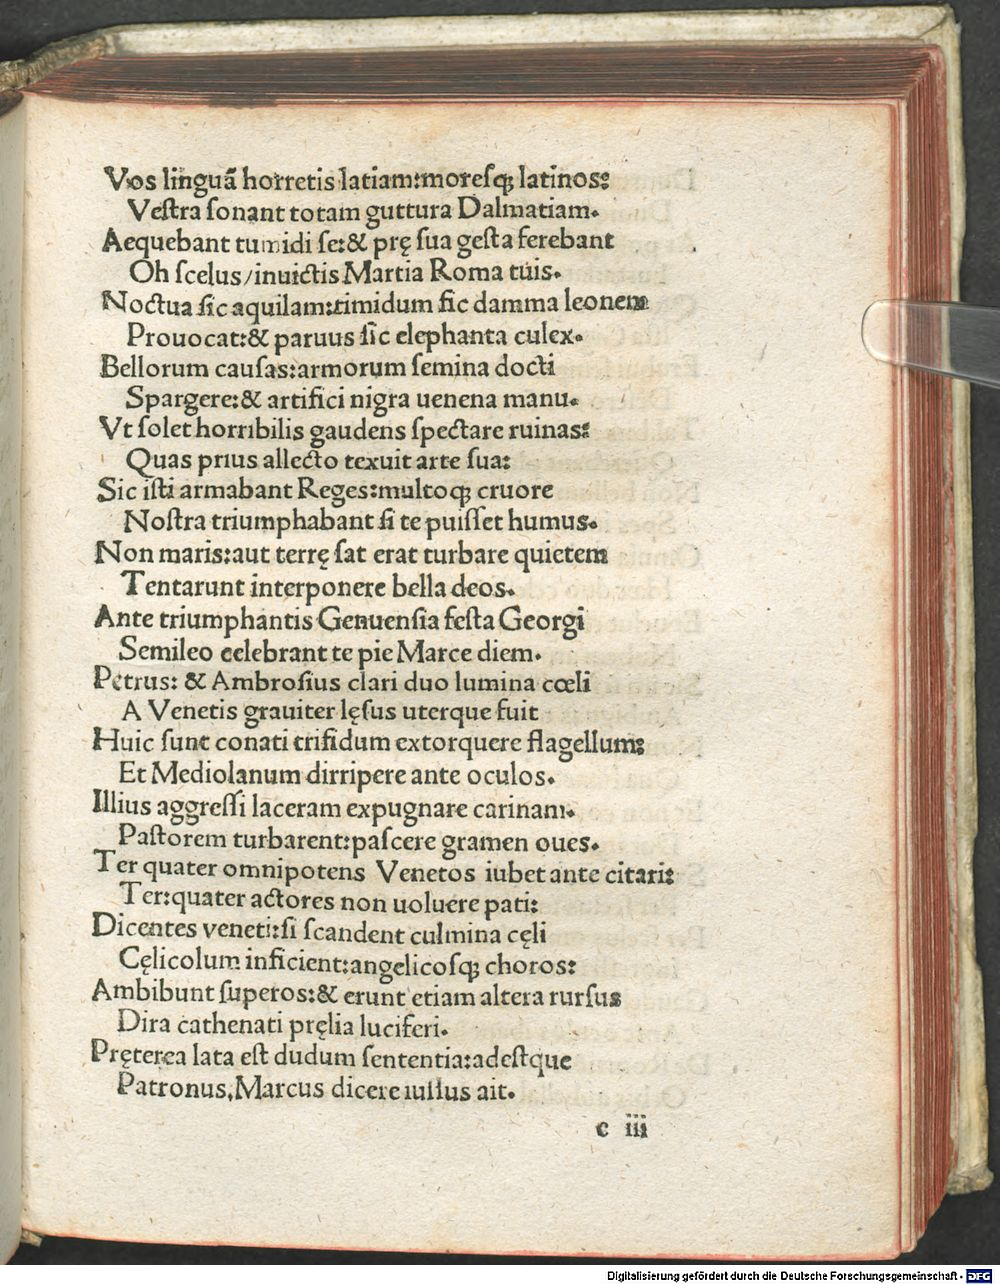 Vos linguā horretis latiam:moresꝗ latinos:
Vestra sonant totam guttura Dalmatiam.
Aequebant tumidi se:& prę sua gesta ferebant
Oh scelus/inuictis Martia Roma tuis.
Noctua sic aquilam:timidum sic damma leonem
Prouocat:& paruus sic elephanta culex.
Bellorum causas:armorum semina docti
Spargere:& artifici nigra uenena manu.
Vt solet horribilis gaudens spectare ruinas:
Quas prius allecto texuit arte sua:
Sic isti armabant Reges:multoꝗ cruore
Nostra triumphabant si te puisset humus.
Non maris:aut terrę sat erat turbare quietem
Tentarunt interponere bella deos.
Ante triumphantis Genuensia festa Georgi
Semileo celebrant te pie Marce diem.
Petrus: & Ambrosius clari duo lumina cœli
A Venetis grauiter lęsus uterque fuit
Huic sunt conati trifidum extorquere flagellum:
Et Mediolanum dirripere ante oculos.
Illius aggressi laceram expugnare carinam.
Pastorem turbarent:pascere gramen oues.
Ter quater omnipotens Venetos iubet ante citari:
Ter:quater actores non uoluere pati:
Dicentes veneti:si scandent culmina cęli
Cęlicolum inficient:angelicosꝗ choros:
Ambibunt superos:& erunt etiam altera rursus
Dira cathenati pręlia luciferi.
Pręterea lata est dudum sententia:adestque
Patronus,Marcus dicere iullus ait.
c iii
Digitalisierung gefördert durch die Deutsche Forschungsgemeinschaft - DFG